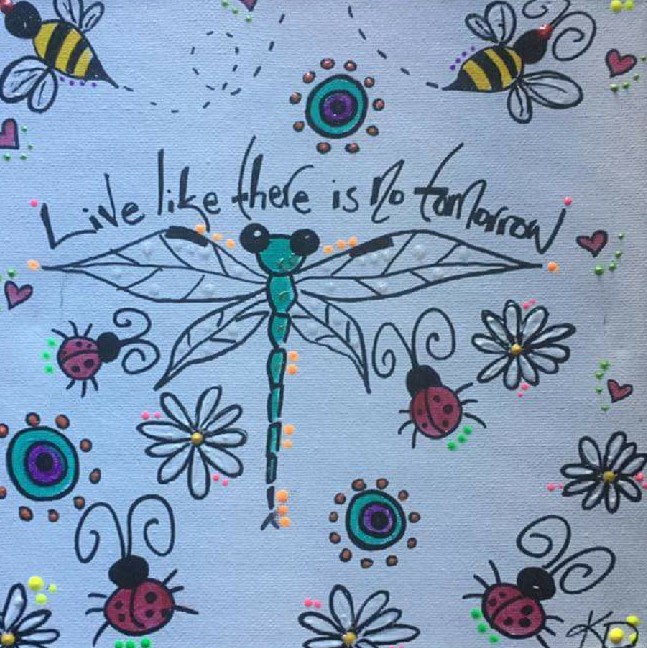 Live like there is no tomorrow
KD